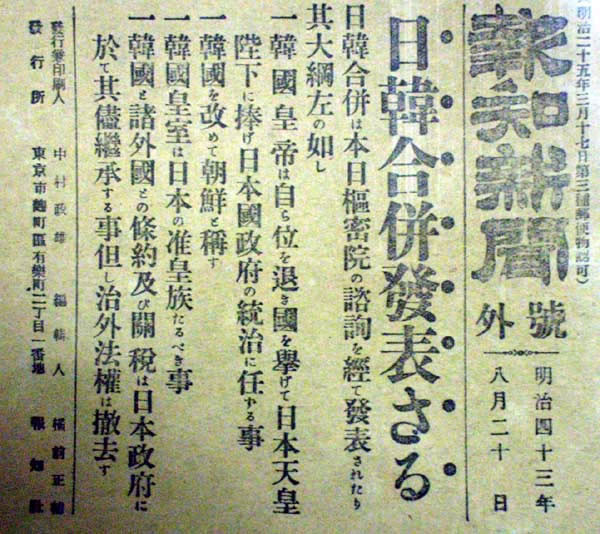 明治二十五年三月十七日第三種郵便物認可)
報知新聞
號外
明治四十三年
八月二十日
日韓合併發表さる
日韓合併は本日樞密院の諮詢を經て發表されたり
其大綱左の如し
一韓國皇帝は自ら位を退き國を擧げて日本天皇
陛下に捧げ日本國政府の統治に任する事
一韓國を改めて朝鮮と稱す
一韓國皇室は日本の准皇族たるべき事
一韓國と諸外國との條約及び關税は日本政府に
於て其儘繼承する事但し治外法權は撤去す
發行兼印刷人 中村政雄 編輯人 橘前正輔
發行所 東京市麹町區有樂町二丁目一番地 報知社